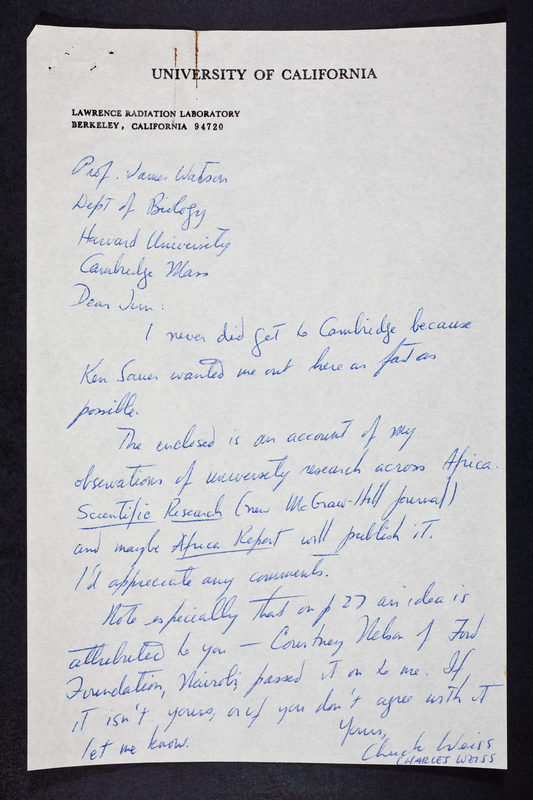 UNIVERSITY OF CALIFORNIA
LAWRENCE RADIATION LABORATORY
BERKELEY, CALIFORNIA 94720
Prof. James Watson
Dept of Biology
Harvard University
Cambridge Mass
Dear Jim:
I never did get to Cambridge because
Ken Sauer wanted me out here as fast as
possible.
The enclosed is an account of my
observations of university research across Africa.
Scientific Research (new McGraw-Hill journal)
and maybe Africa Report will publish it.
I'd appreciate any comments.
Note especially that on p 27 an idea is
attributed to you — Courtney Nelson of Ford
Foundation, Nairobi, passed it on to me. If
it isn't yours, or if you don't agree with it
let me know.
Yours,
Chuck Weiss
CHARLES WEISS